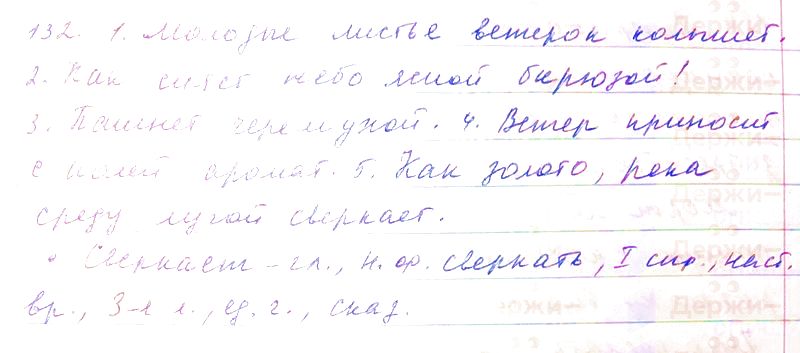 132. 1. Молодые листье ветерок колышет.
2. Как сияет небо ясной бирюзой!
3. Пахнет черемухой. 4. Ветер приносит
с полей аромат. 5. Как золото, река
среду лугой сверкает.
• Сверкает – гл., н. ф. сверкать, I спр., наст.
вр., 3-е л., ед. ч., сказ.